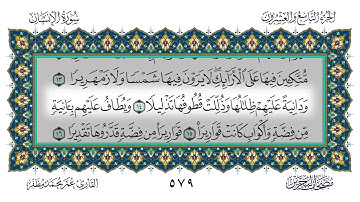 الجزء التاسع والعشرون
سورة الإنسان
مُتَّكِئِينَ فِيهَا عَلَى الْأَرَائِكِ لَا يَرَوْنَ فِيهَا شَمْسًا وَلَا زَمْهَرِيرًا ١٣
وَدَانِيَةً عَلَيْهِمْ ظِلَالُهَا وَذُلِّلَتْ قُطُوفُهَا تَذْلِيلًا ١٤ وَيُطَافُ عَلَيْهِم بِآنِيَةٍ
مِّن فِضَّةٍ وَأَكْوَابٍ كَانَتْ قَوَارِيرَا ١٥ قَوَارِيرَا مِن فِضَّةٍ قَدَّرُوهَا تَقْدِيرًا ١٦
٥٧٩
القارئ عمر محمد مظفر